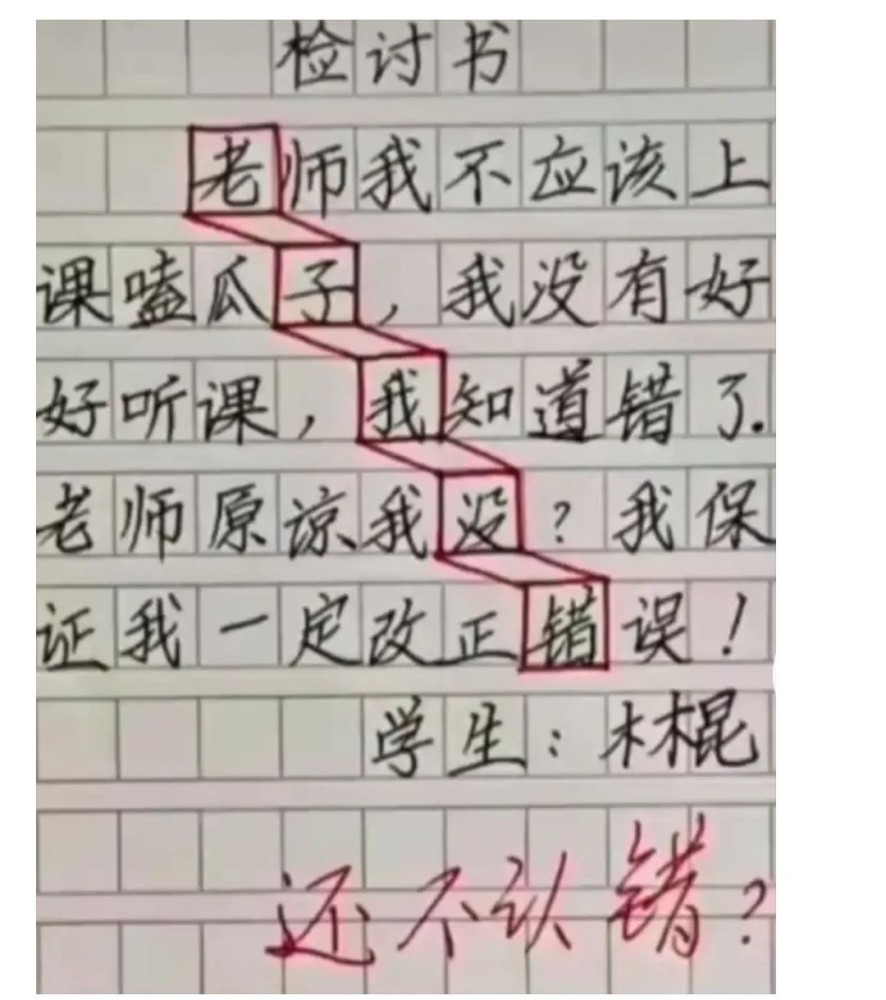 检讨书
老师我不应该上
课嗑瓜子,我没有好
好听课,我知道错了.
老师原谅我没?我保
证我一定改正错误!
学生:林棍
还不认错?